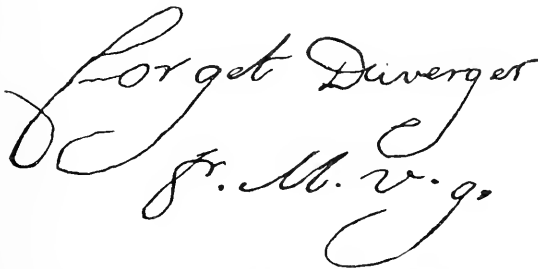 forget Duverger
fr. M. v. g.